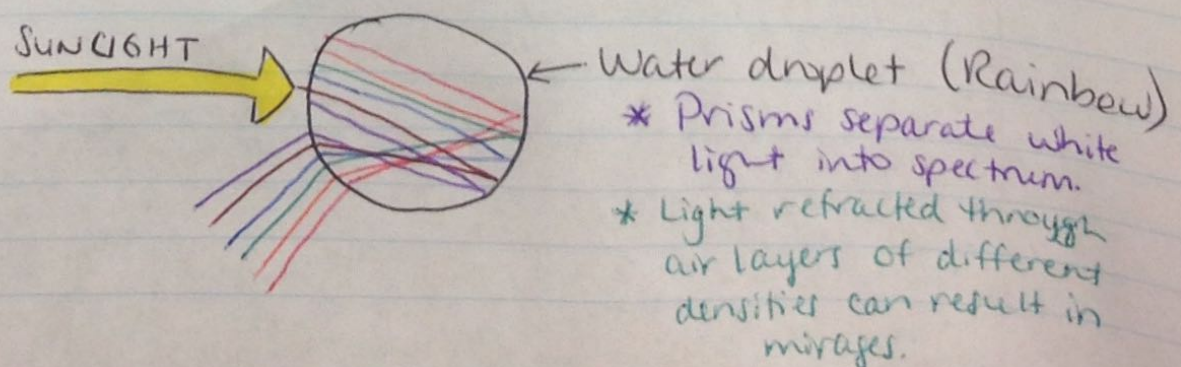 SUNLIGHT
Water droplet (Rainbow)
* Prisms separate white
light into spectrum.
* Light refracted through
air layers of different
densities can result in
mirages.